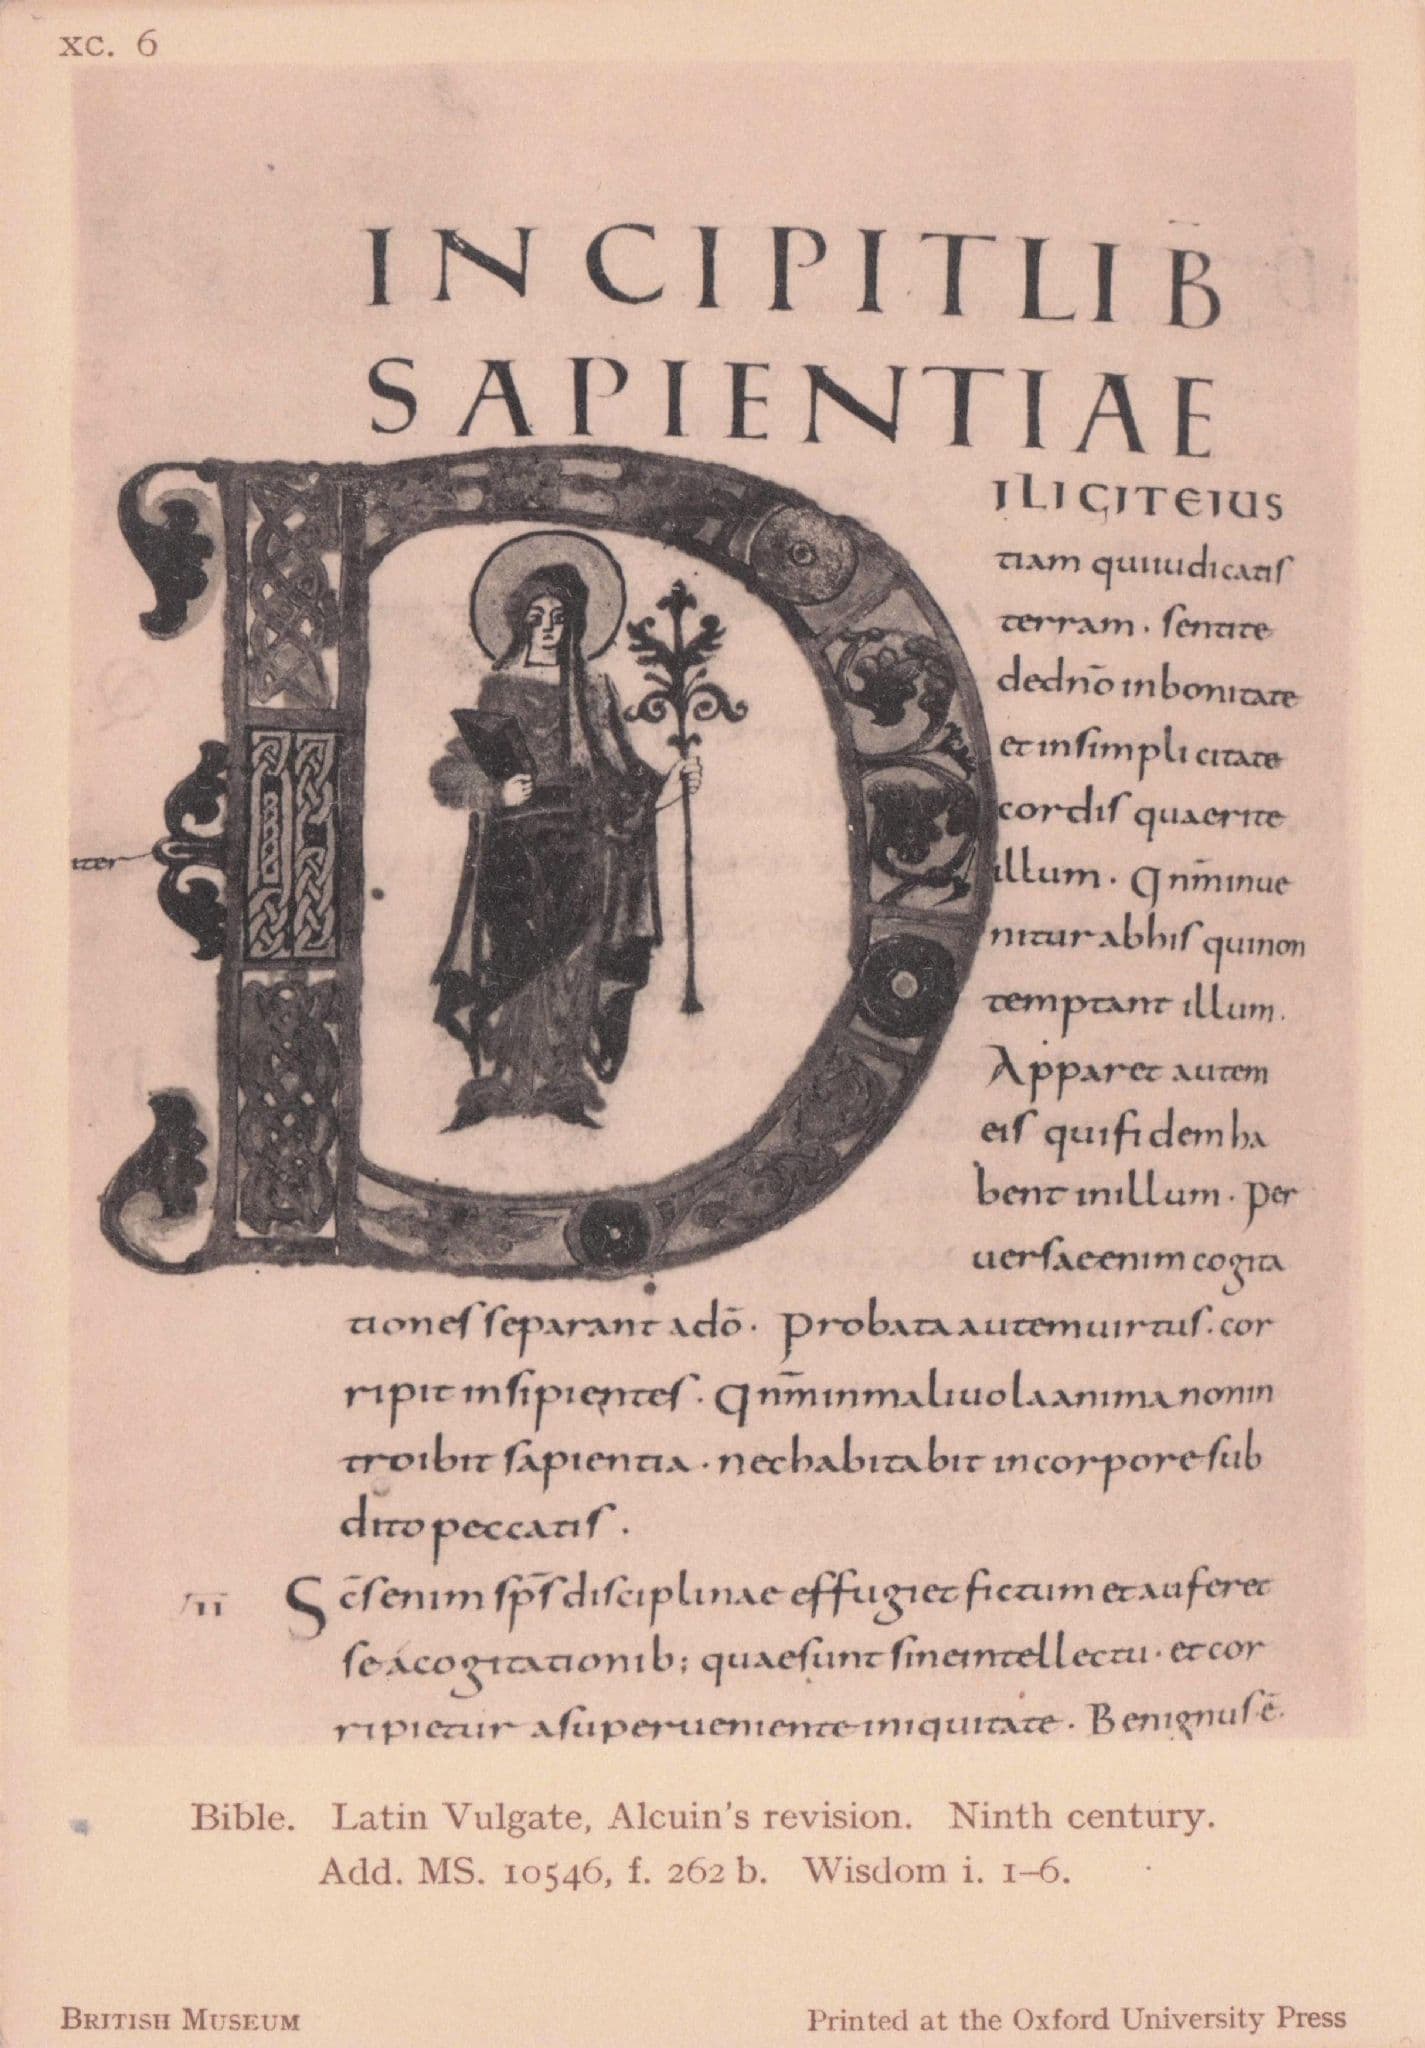 xc. 6
INCIPITLIB̅
SAPIENTIAE
DILIGITEIUS
tiam quiiudicatis
terram· sentite
dedño inbonitate
et insimplicitate
cordis quaerite
illum· Qnm̅ inue
nitur abhis quinon
iter
temptant illum.
Apparet autem
eis qui fidem ha
bent inillum· Per
uersae enim cogita
tiones separant adō· Probata autem uirtus· cor
ripit insipientes· Qnm̅ inmaliuola anima non in
troibit sapientia· nec habitabit incorpore sub
dito peccatis·
II S̅c̅s̅ enim sp̅s̅ disciplinae effugiet fictum et auferet
se á cogitationib; quae sunt sine intellectu· et cor
ripietur asuperueniente iniquitate· Benignus ē·
Bible. Latin Vulgate, Alcuin's revision. Ninth century.
Add. MS. 10546, f. 262 b. Wisdom i. 1–6.
BRITISH MUSEUM
Printed at the Oxford University Press